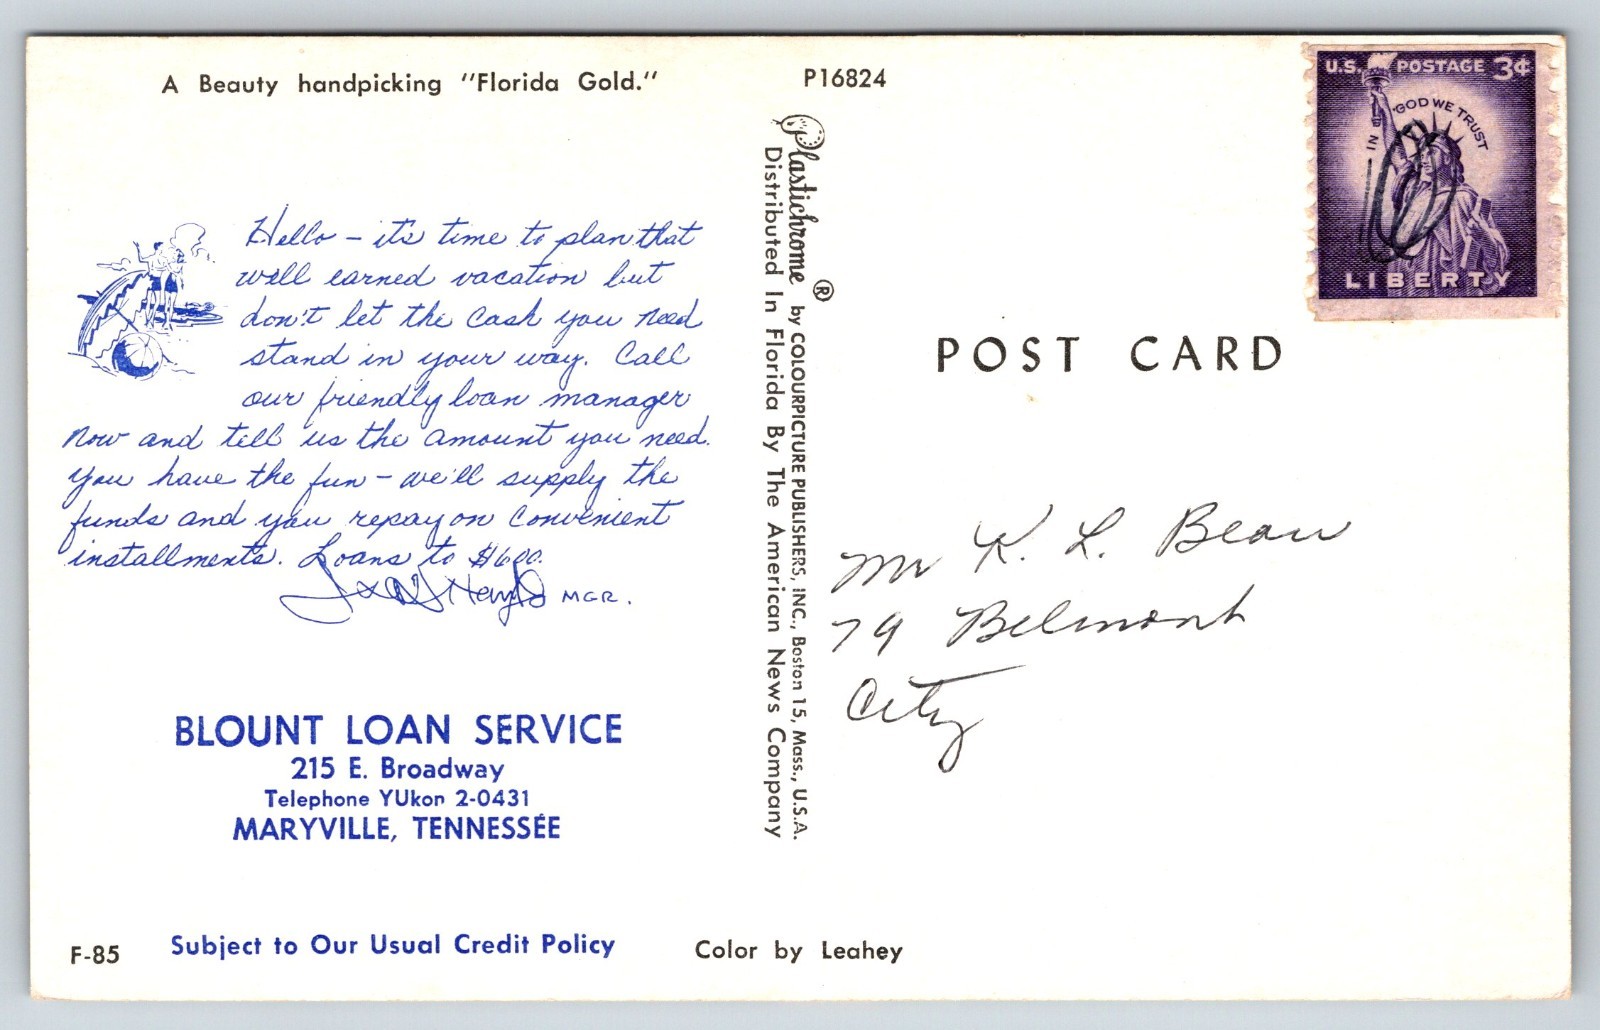 A Beauty handpicking "Florida Gold."
P16824
U.S. POSTAGE 3¢
IN GOD WE TRUST
LIBERTY
Hello – it's time to plan that
well earned vacation but
don't let the cash you need
stand in your way. Call
our friendly loan manager
now and tell us the amount you need.
You have the fun – we'll supply the
funds and you repay on convenient
installments. Loans to $600.
MGR.
BLOUNT LOAN SERVICE
215 E. Broadway
Telephone YUkon 2-0431
MARYVILLE, TENNESSEE
F-85
Subject to Our Usual Credit Policy
Plastichrome ® by COLOURPICTURE PUBLISHERS, INC., Boston 15, Mass., U.S.A.
Distributed In Florida By The American News Company
Color by Leahey
POST CARD
Mr K. L. Bean
79 Belmont
City